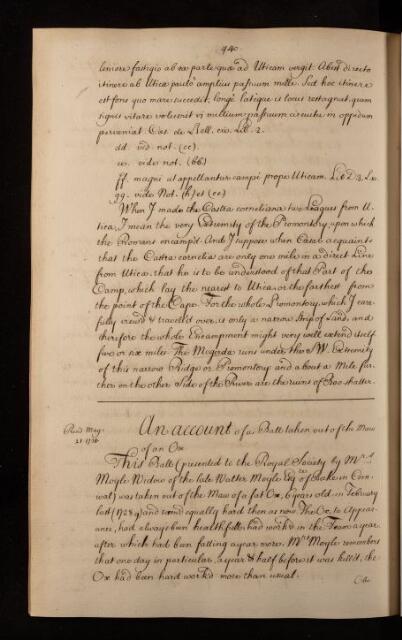 940
leniore fastigio ab ea parte quæ ad Uticam vergit. Abest directo
itinere ab Utica paulo amplius passuum mille. Sed hoc itinere
est fons quo mare succedit, longè latéque is locus restagnat, quem
siquis vitare voluerit vi millium passuum circuitu in oppidum
perveniat. Cæs. de Bell. civ. Lib. 2.
dd. vid. not. (cc).
ee. vide not. (bb)
ff. magni at appellantur campi prope Uticam. Lib.
gg. vide Not. (h) et (ee)
When I made the Castra corneliana two Leagues from U-
tica, I mean the very Extremity of the Promontory, upon which
the Romans encampt. And I suppose when Cæsar acquaints
that the Castra cornelia are only one mile in a direct Line
from Utica, that he is to be understood of that Part of the
Camp, which lay the nearest to Utica, or the farthest from
the point of the Cape. For the whole Promontory, which I care-
fully view'd & travell'd over, is only a narrow Strip of Land, and
therefore the whole Encampment might very well extend itself
five or six miles. The Megerda runs under the S.W. Extremity
of this narrow Ridge or Promontory and about a Mile fur-
ther on the other Side of the River are the ruins of Booshatter.
Read May
21. 1736
An account of a Ball taken out of the Maw
of an Ox
This Ball (presented to the Royal Society by Mrs.
Moyle Widow of the late Walter Moyle Esqr. of Bake in Corn-
wal) was taken out of the Maw of a fat Ox, 6 years old in February
last (1728/9) and was equally hard then as now. The Ox, to Appear-
ance, had always been healthfull, had work'd in the Team a year,
after which had been fatting a year more. Mrs. Moyle remembers
that one day in particular, a year & half before it was kill'd, the
Ox had been hard work'd more than usual.